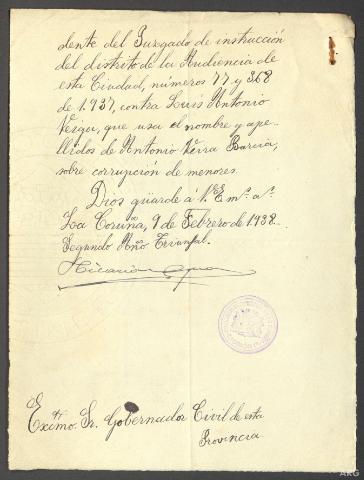 dente del Juzgado de instrucción
del distrito de la Audiencia de
esta Ciudad, números 77 y 368
de 1.937, contra Luis Antonio
Veiga, que usa el nombre y ape-
llidos de Antonio Neira García,
sobre corrupción de menores.
Dios guarde á V.E. m.s a.s
La Coruña, 9 de Febrero de 1938.
Segundo Año Triunfal.
Excmo. Sr. Gobernador Civil de esta
Provincia
ARG